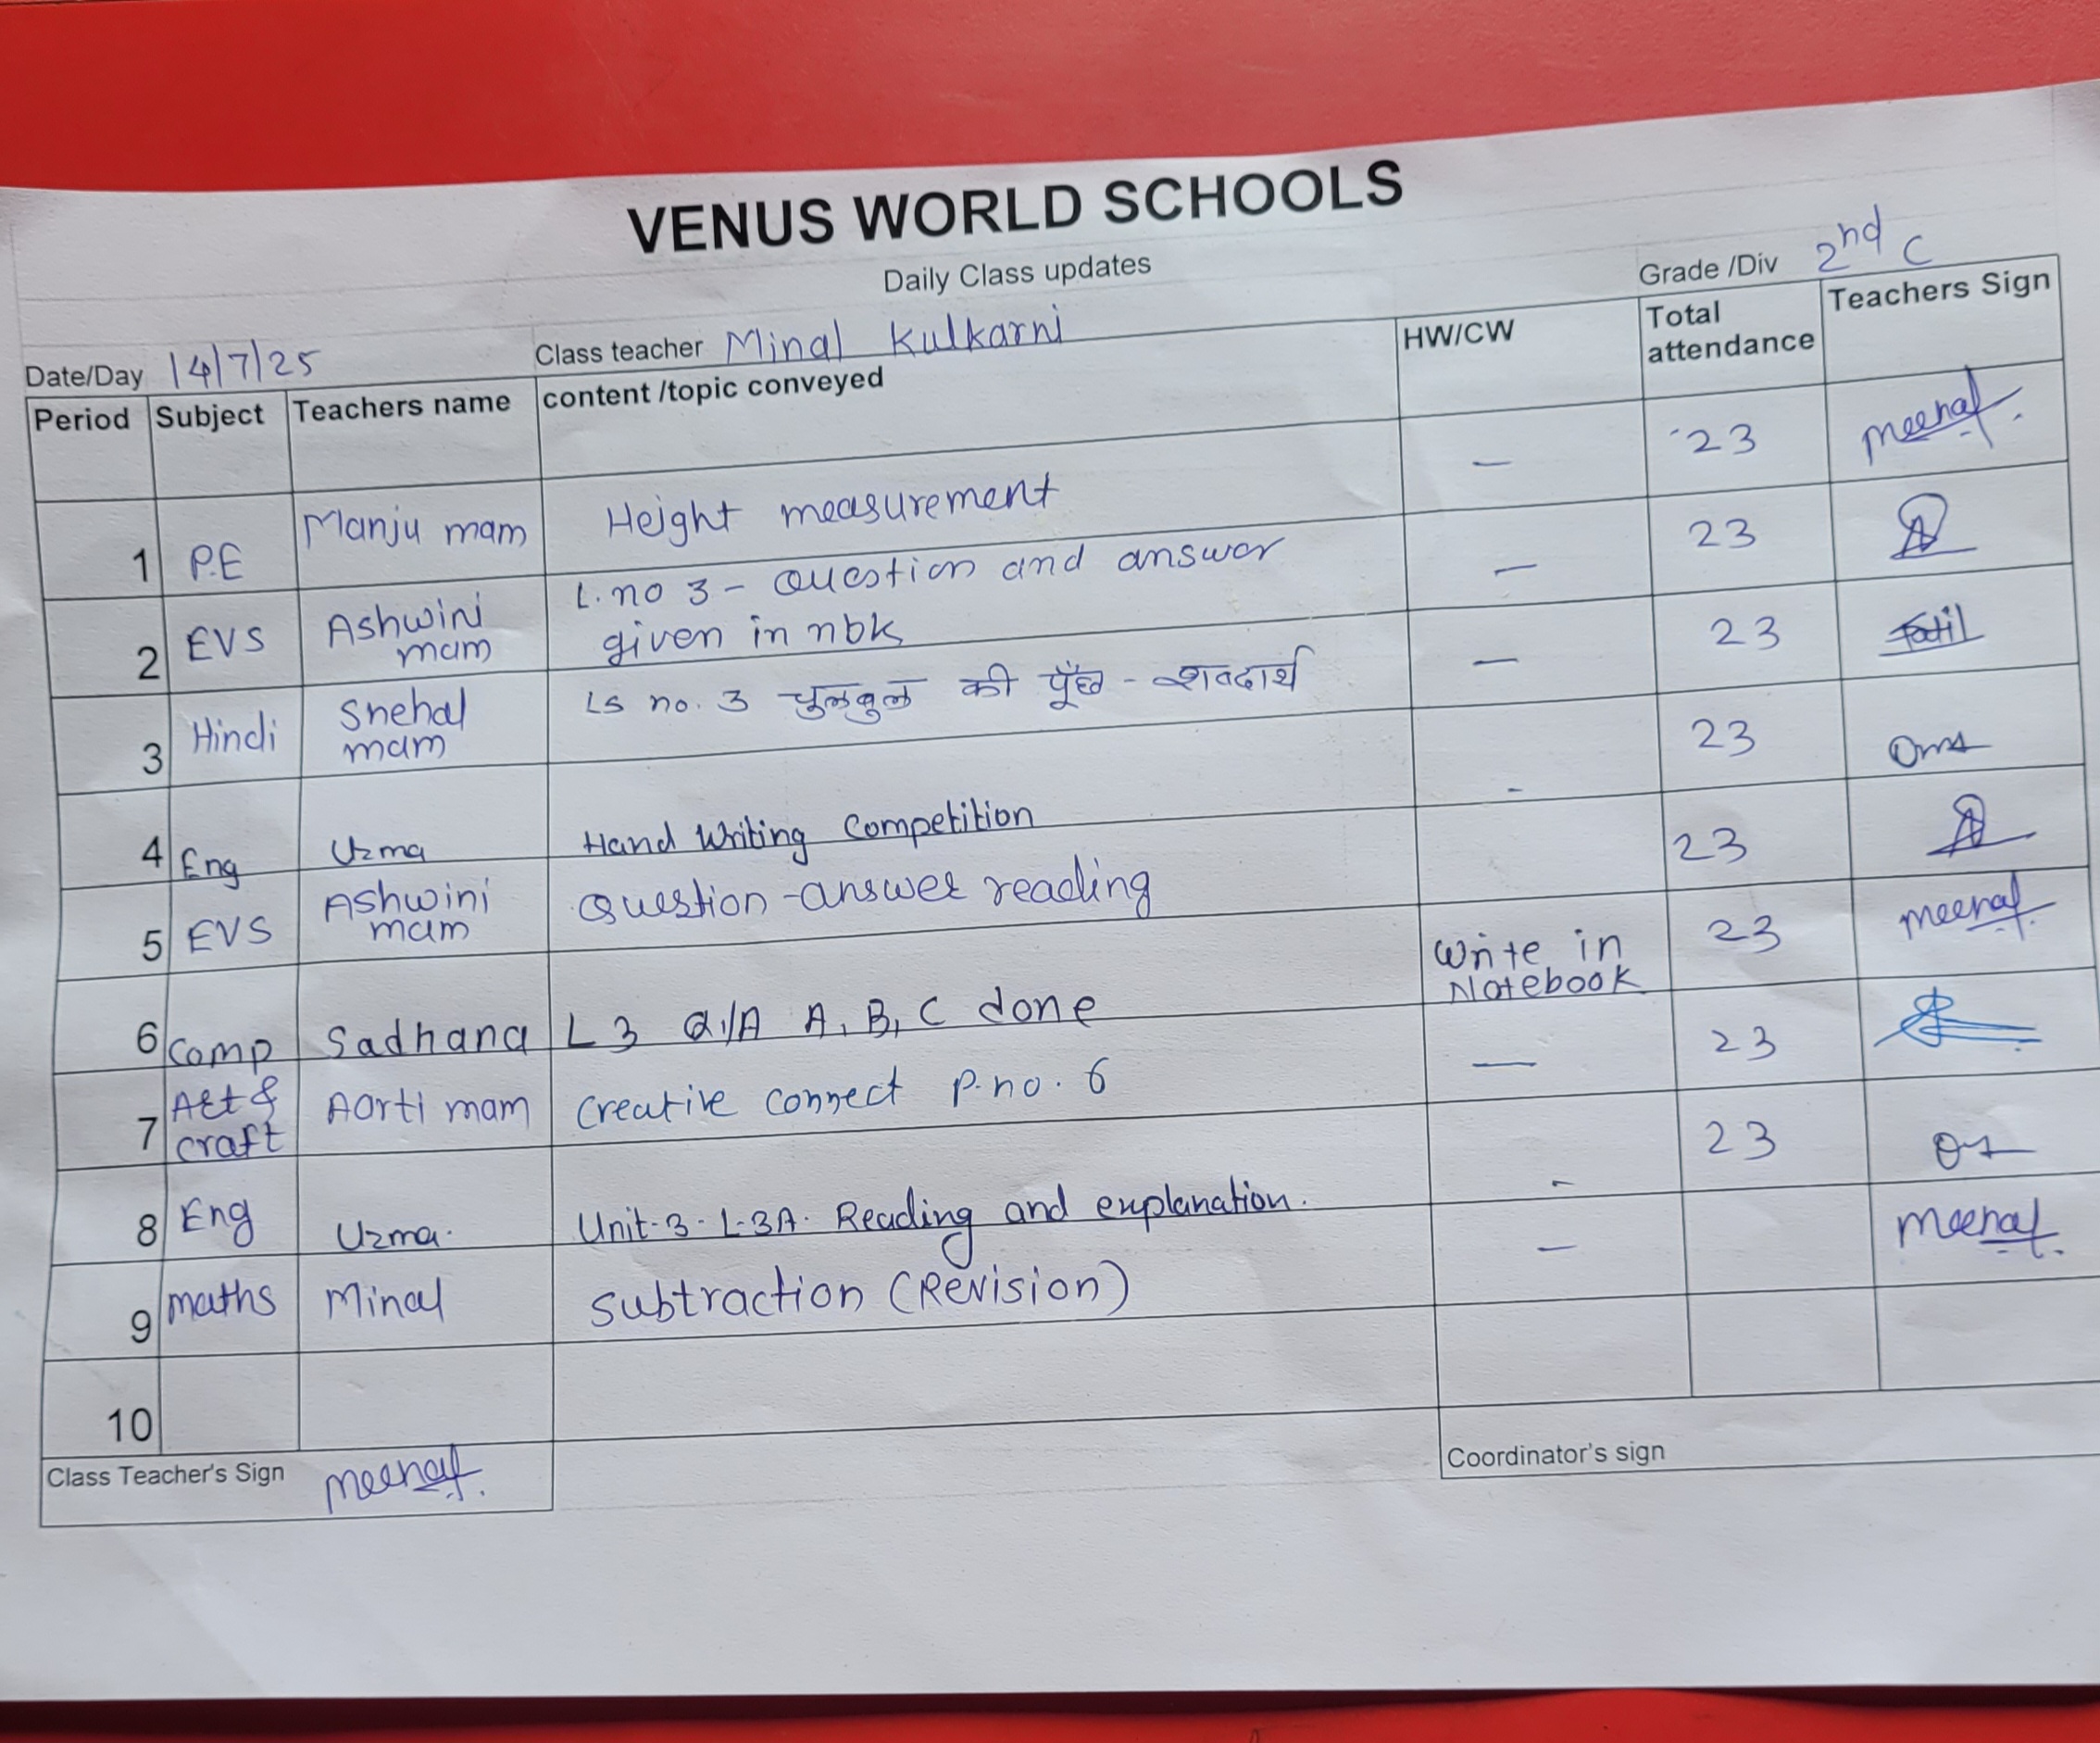 VENUS WORLD SCHOOLS
Daily Class updates
Grade /Div 2nd C
Date/Day 14/7/25 Class teacher Minal Kulkarni
Period Subject Teachers name content /topic conveyed HW/CW Total attendance Teachers Sign
1 P.E Manju mam Height measurement — 23 meenal
2 EVS Ashwini mam L. no 3 - Question and answer given in nbk — 23
3 Hindi Snehal mam Ls no. 3 चुलबुल की पूँछ - शब्दार्थ — 23
4 Eng Uzma Hand Writing Competition - 23
5 EVS Ashwini mam Question -answer reading 23
6 Comp Sadhana L 3 Q/A A, B, C done Write in Notebook 23 meenal
7 Art & craft Aarti mam Creative connect P. no. 6 — 23
8 Eng Uzma. Unit-3-L-3A. Reading and explanation. - 23
9 maths Minal subtraction (Revision) — meenal
10
Class Teacher's Sign meenal
Coordinator's sign